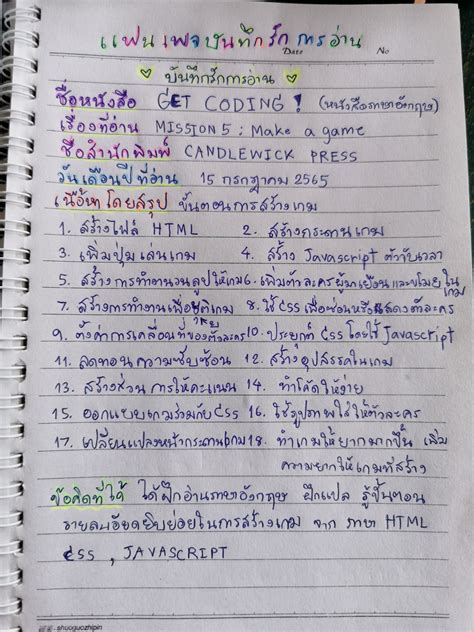 แฟนเพจบันทึกรักการอ่าน
Date No
บันทึกรักการอ่าน
ชื่อหนังสือ GET CODING! (หนังสือภาษาอังกฤษ)
เรื่องที่อ่าน MISSION 5 : Make a game
ชื่อสำนักพิมพ์ CANDLEWICK PRESS
วันเดือนปีที่อ่าน 15 กรกฎาคม 2565
เนื้อหาโดยสรุป ขั้นตอนการสร้างเกม
1. สร้างไฟล์ HTML 2. สร้างกระดานเกม
3. เพิ่มปุ่มเล่นเกม 4. สร้าง Javascript ตัวจับเวลา
5. สร้างการทำงานวนลูปให้เกม 6. เพิ่มตัวละครผู้มาเยือนและขโมยในเกม
7. สร้างการทำงานเพื่อยุติเกม 8. ใช้ CSS เพื่อซ่อนหรือแสดงตัวละคร
9. ตั้งค่าการเคลื่อนที่ของตัวละคร 10. ประยุกต์ CSS โดยใช้ Javascript
11. ลดทอนความซับซ้อน 12. สร้างอุปสรรคในเกม
13. สร้างส่วนการให้คะแนน 14. ทำโค้ดให้ง่าย
15. ออกแบบเกมร่วมกับ CSS 16. ใช้รูปภาพใส่ให้ตัวละคร
17. เปลี่ยนแปลงหน้ากระดานเกม 18. ทำเกมให้ยากมากขึ้น เพิ่ม
ความยากให้เกมที่สร้าง
ข้อคิดที่ได้ ได้ฝึกอ่านภาษาอังกฤษ ฝึกแปล รู้ขั้นตอน
รายละเอียดยิบย่อยในการสร้างเกม จาก ภาษา HTML
CSS , JAVASCRIPT
shuoguozhipin